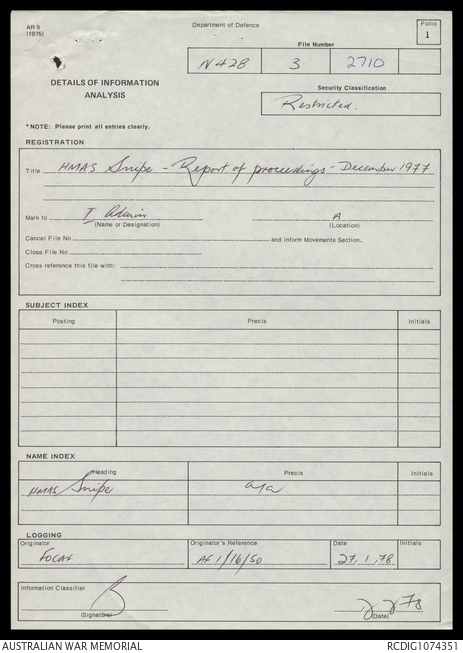 AR 5
(1975)
Department of Defence
Folio
1
File Number
N428 3 2710
DETAILS OF INFORMATION
ANALYSIS
Security Classification
Restricted.
*NOTE: Please print all entries clearly.
REGISTRATION
Title HMAS Snipe - Report of proceedings - December 1977
Mark to I Admin A
(Name or Designation) (Location)
Cancel File No and Inform Movements Section.
Close File No
Cross reference this file with:
SUBJECT INDEX
Posting Precis Initials
NAME INDEX
Heading Precis Initials
HMAS Snipe a/a
LOGGING
Originator Originator's Reference Date Initials
FOCAF AF 1/16/50 27.1.78
Information Classifier
(Signature) (Date)
AUSTRALIAN WAR MEMORIAL RCDIG1074351